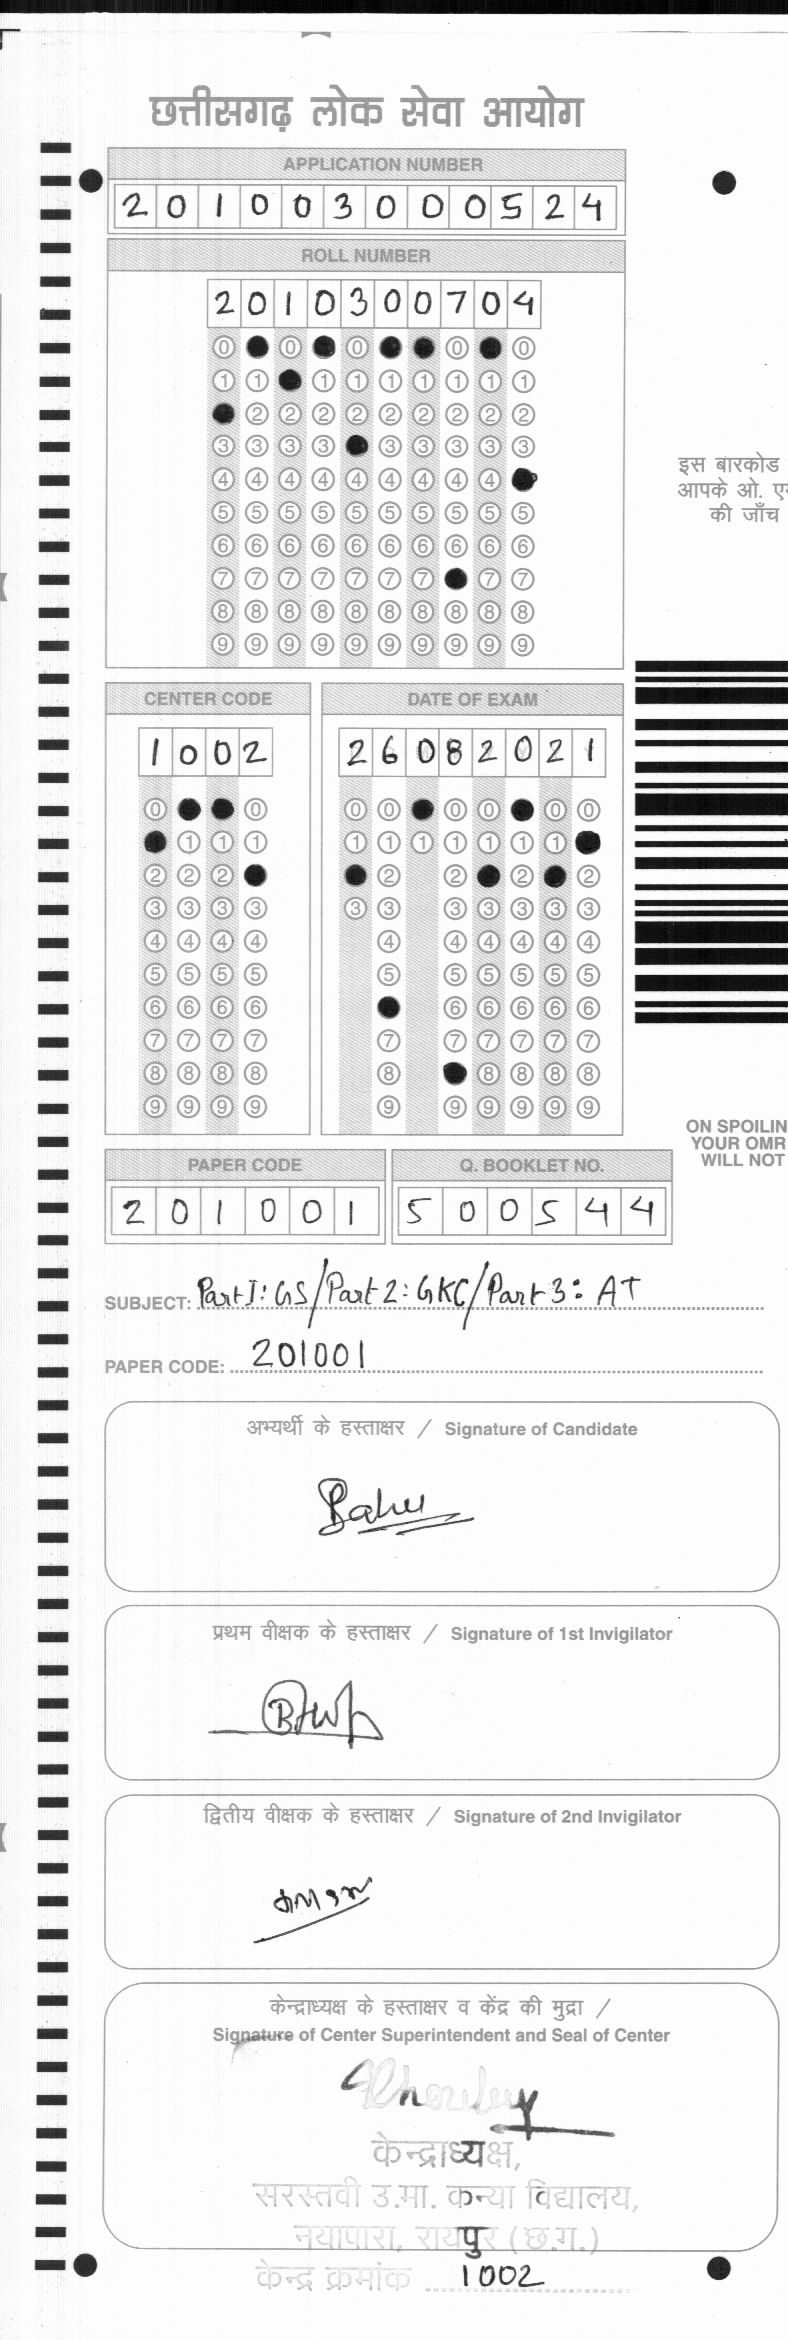 छत्तीसगढ़ लोक सेवा आयोग
APPLICATION NUMBER
201003000524
ROLL NUMBER
2010300704
0 0 0 0 0
1 1 1 1 1 1 1 1 1
2 2 2 2 2 2 2 2 2
3 3 3 3 3 3 3 3 3
4 4 4 4 4 4 4 4 4
5 5 5 5 5 5 5 5 5 5
6 6 6 6 6 6 6 6 6 6
7 7 7 7 7 7 7 7 7
8 8 8 8 8 8 8 8 8 8
9 9 9 9 9 9 9 9 9 9
इस बारकोड
आपके ओ.
की जाँच
CENTER CODE
1002
0 0
1 1 1
2 2 2
3 3 3 3
4 4 4 4
5 5 5 5
6 6 6 6
7 7 7 7
8 8 8 8
9 9 9 9
DATE OF EXAM
26082021
0 0 0 0 0 0
1 1 1 1 1 1 1
2 2 2 2
3 3 3 3 3 3 3
4 4 4 4 4 4
5 5 5 5 5 5
6 6 6 6 6
7 7 7 7 7 7
8 8 8 8 8
9 9 9 9 9 9
ON SPOILIN
YOUR OMR
WILL NOT
PAPER CODE
201001
Q. BOOKLET NO.
500544
SUBJECT: Part I: GS/Part 2: GKC/Part 3: AT
PAPER CODE: 201001
अभ्यर्थी के हस्ताक्षर / Signature of Candidate
प्रथम वीक्षक के हस्ताक्षर / Signature of 1st Invigilator
द्वितीय वीक्षक के हस्ताक्षर / Signature of 2nd Invigilator
केन्द्राध्यक्ष के हस्ताक्षर व केंद्र की मुद्रा /
Signature of Center Superintendent and Seal of Center
केन्द्राध्यक्ष,
सरस्वती उ.मा. कन्या विद्यालय,
नयापारा, रायपुर (छ.ग.)
केन्द्र क्रमांक 1002